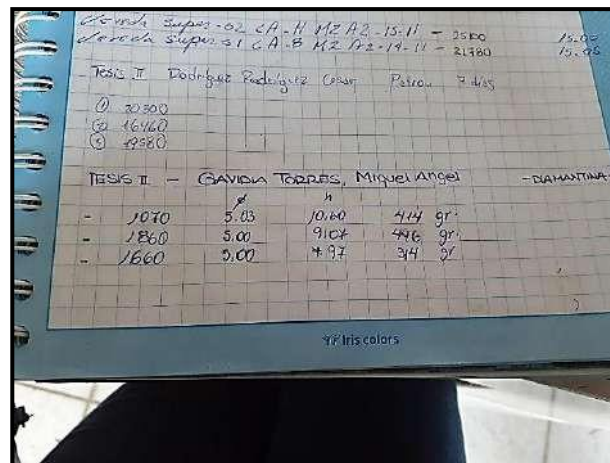 super-02 CA-H MZ A2-15-11 - 25100 15.00
super-01 CA-B MZ A2-14-11 - 21780 15.05
Tesis II Rodriguez Rodriguez 7 dias
① 20300
② 16460
③ 19580
TESIS II - GAVIDIA TORRES, Miguel Angel - DIAMANTINA
ø h
- 1070 5.03 10.60 414 gr.
- 1860 5.00 9.07 446 gr.
- 1660 5.00 7.97 314 gr
Iris colors